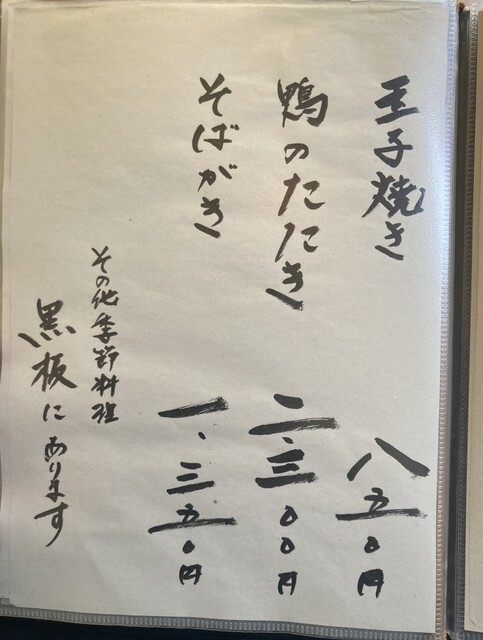 玉子焼き 八五〇円
鴨のたたき 二、三〇〇円
そばがき 一、三五〇円
その他季節料理
黒板にあります